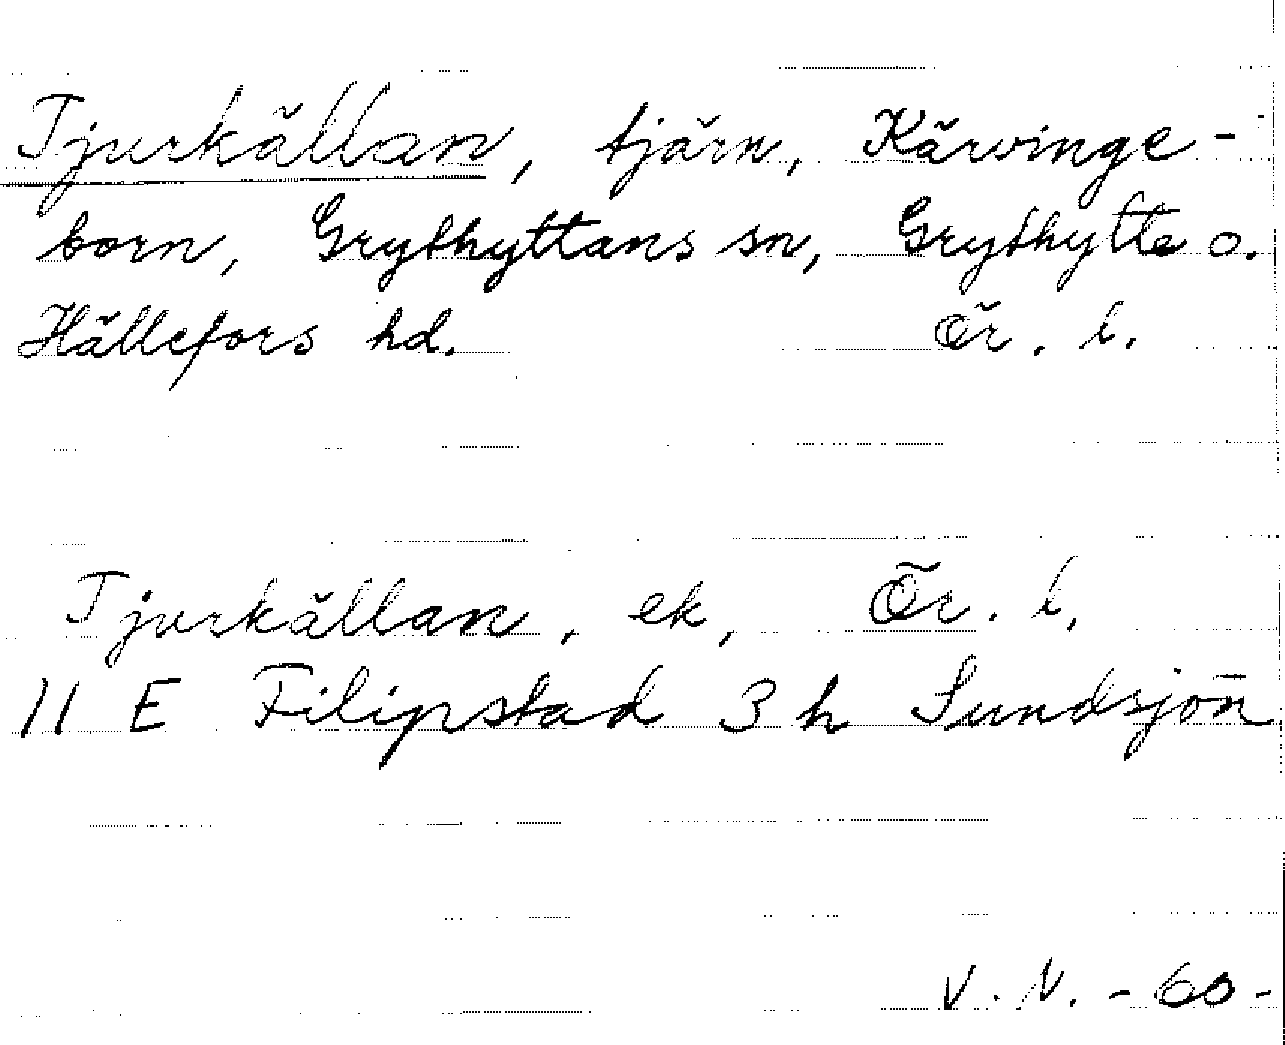 Tjurkällan, tjärn, Kärvinge-
born, Grythyttans sn, Grythytte o.
Hällefors hd. Ör. l.
Tjurkällan, ek, Ör. l.
11 E Filipstad 3 h Sundsjön
V. N. -60-